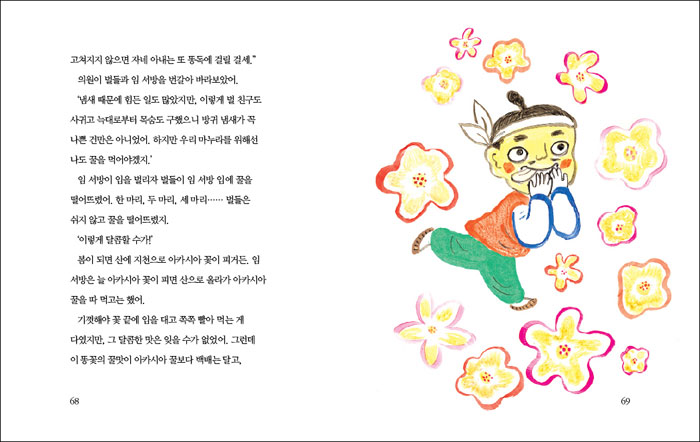 고쳐지지 않으면 자네 아내는 또 똥독에 걸릴 걸세.”
의원이 벌들과 임 서방을 번갈아 바라보았어.
‘냄새 때문에 힘든 일도 많았지만, 이렇게 벌 친구도
사귀고 늑대로부터 목숨도 구했으니 방귀 냄새가 꼭
나쁜 건만은 아니었어. 하지만 우리 마누라를 위해선
나도 꿀을 먹어야겠지.’
임 서방이 입을 벌리자 벌들이 임 서방 입에 꿀을
떨어뜨렸어. 한 마리, 두 마리, 세 마리…… 벌들은
쉬지 않고 꿀을 떨어뜨렸지.
‘이렇게 달콤할 수가!’
봄이 되면 산에 지천으로 아카시아 꽃이 피거든. 임
서방은 늘 아카시아 꽃이 피면 산으로 올라가 아카시아
꿀을 따 먹고는 했어.
기껏해야 꽃 끝에 입을 대고 쪽쪽 빨아 먹는 게
다였지만, 그 달콤한 맛은 잊을 수가 없었어. 그런데
이 똥꽃의 꿀맛이 아카시아 꿀보다 백배는 달고,
68
69